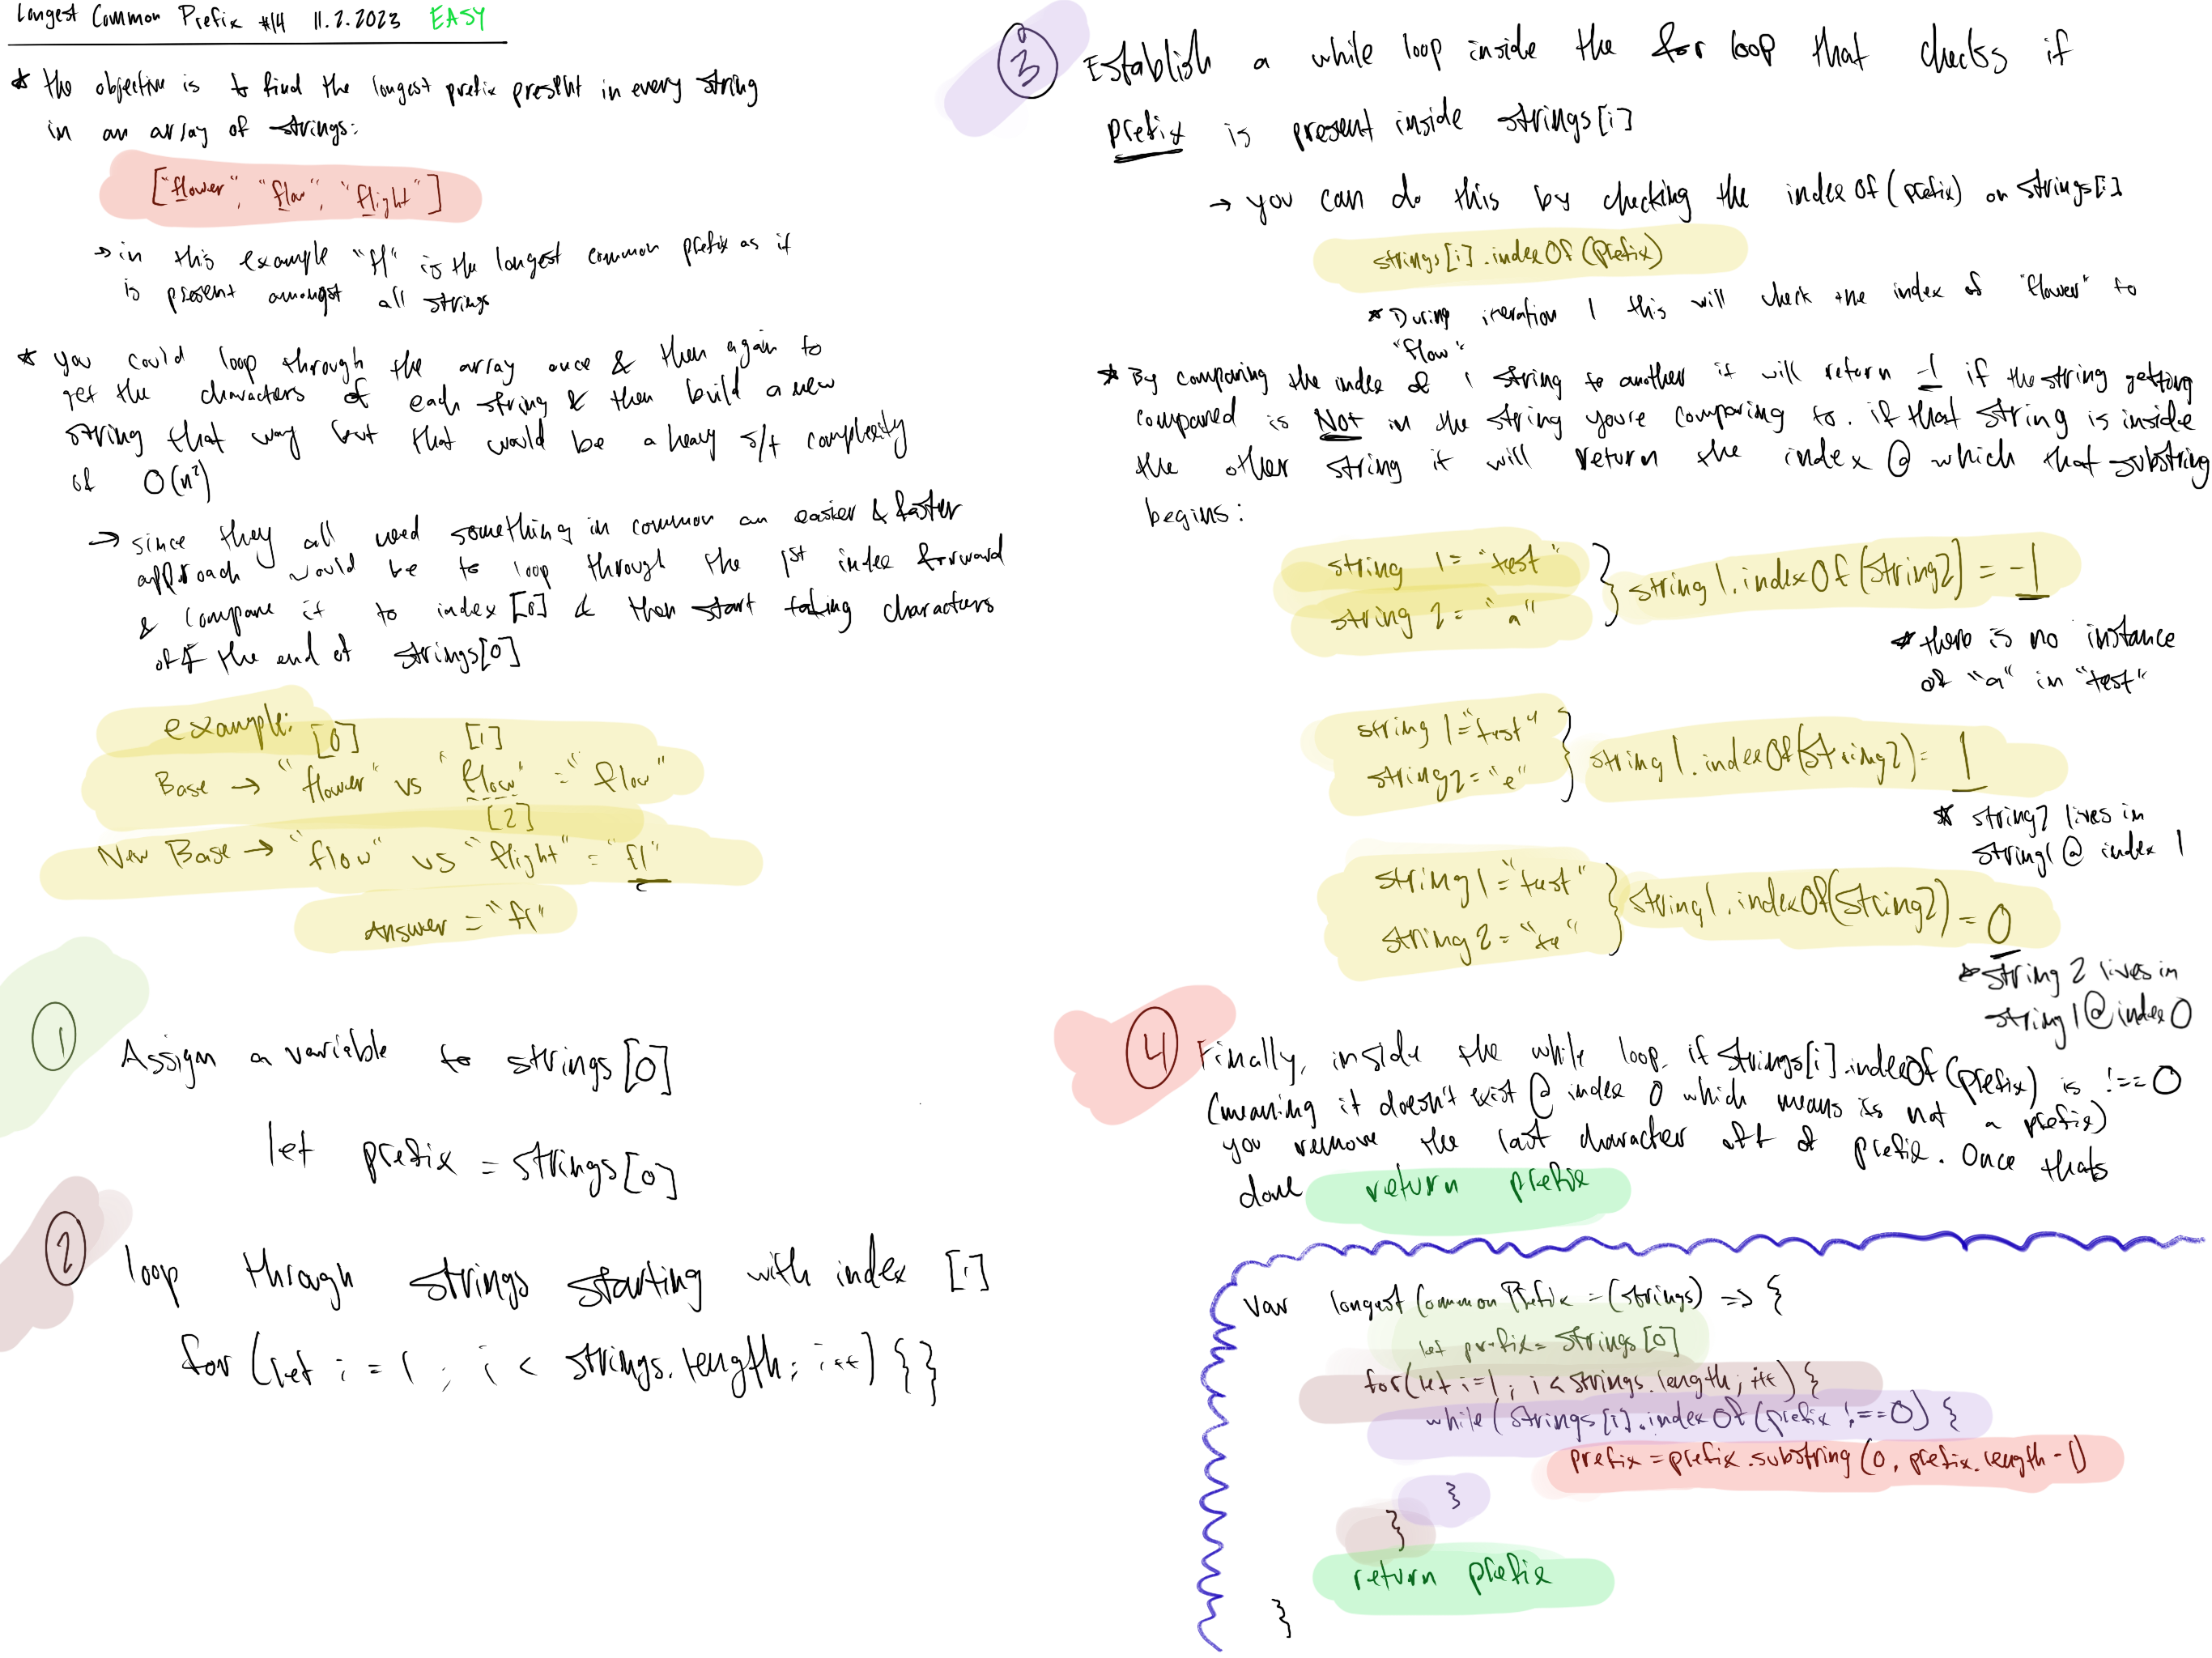 Longest Common Prefix #14 11.2.2023 EASY
* the objective is to find the longest prefix present in every string
in an array of strings:
["flower", "flow", "flight"]
→ in this example "fl" is the longest common prefix as it
is present amongst all strings
* you could loop through the array once & then again to
get the characters of each string & then build a new
string that way but that would be a heavy s/t complexity
of O(n²)
→ since they all need something in common an easier & faster
approach would be to loop through the 1st index forward
& compare it to index [0] & then start taking characters
off the end of strings[0]
example:
[0] [1]
Base → "flower" vs "flow" = "flow"
[2]
New Base → "flow" vs "flight" = "fl"
Answer = "fl"
1
Assign a variable to strings[0]
let prefix = strings[0]
2
loop through strings starting with index [1]
for (let i = 1; i < strings.length; i++) { }
3
Establish a while loop inside the for loop that checks if
prefix is present inside strings[i]
→ you can do this by checking the indexOf(prefix) on strings[i]
strings[i].indexOf(prefix)
* During iteration 1 this will check the index of "flower" to
"flow"
* By comparing the index of 1 string to another it will return -1 if the string getting
compared is NOT in the string youre comparing to. if that string is inside
the other string it will return the index @ which that substring
begins:
string 1 = "test"
string 2 = "a"
} string 1.indexOf(string2) = -1
* there is no instance
of "a" in "test"
string 1 = "test"
string2 = "e"
} string 1.indexOf(string2) = 1
* string2 lives in
string1 @ index 1
string1 = "test"
string2 = "te"
} string1.indexOf(string2) = 0
* string 2 lives in
string 1 @ index 0
4
Finally, inside the while loop, if strings[i].indexOf(prefix) is !== 0
(meaning it doesn't exist @ index 0 which means its not a prefix)
you remove the last character off of prefix. Once thats
done return prefix
var longestCommonPrefix = (strings) => {
let prefix = strings[0]
for(let i=1; i < strings.length; i++) {
while(strings[i].indexOf(prefix !== 0) {
prefix = prefix.substring(0, prefix.length - 1)
}
}
return prefix
}